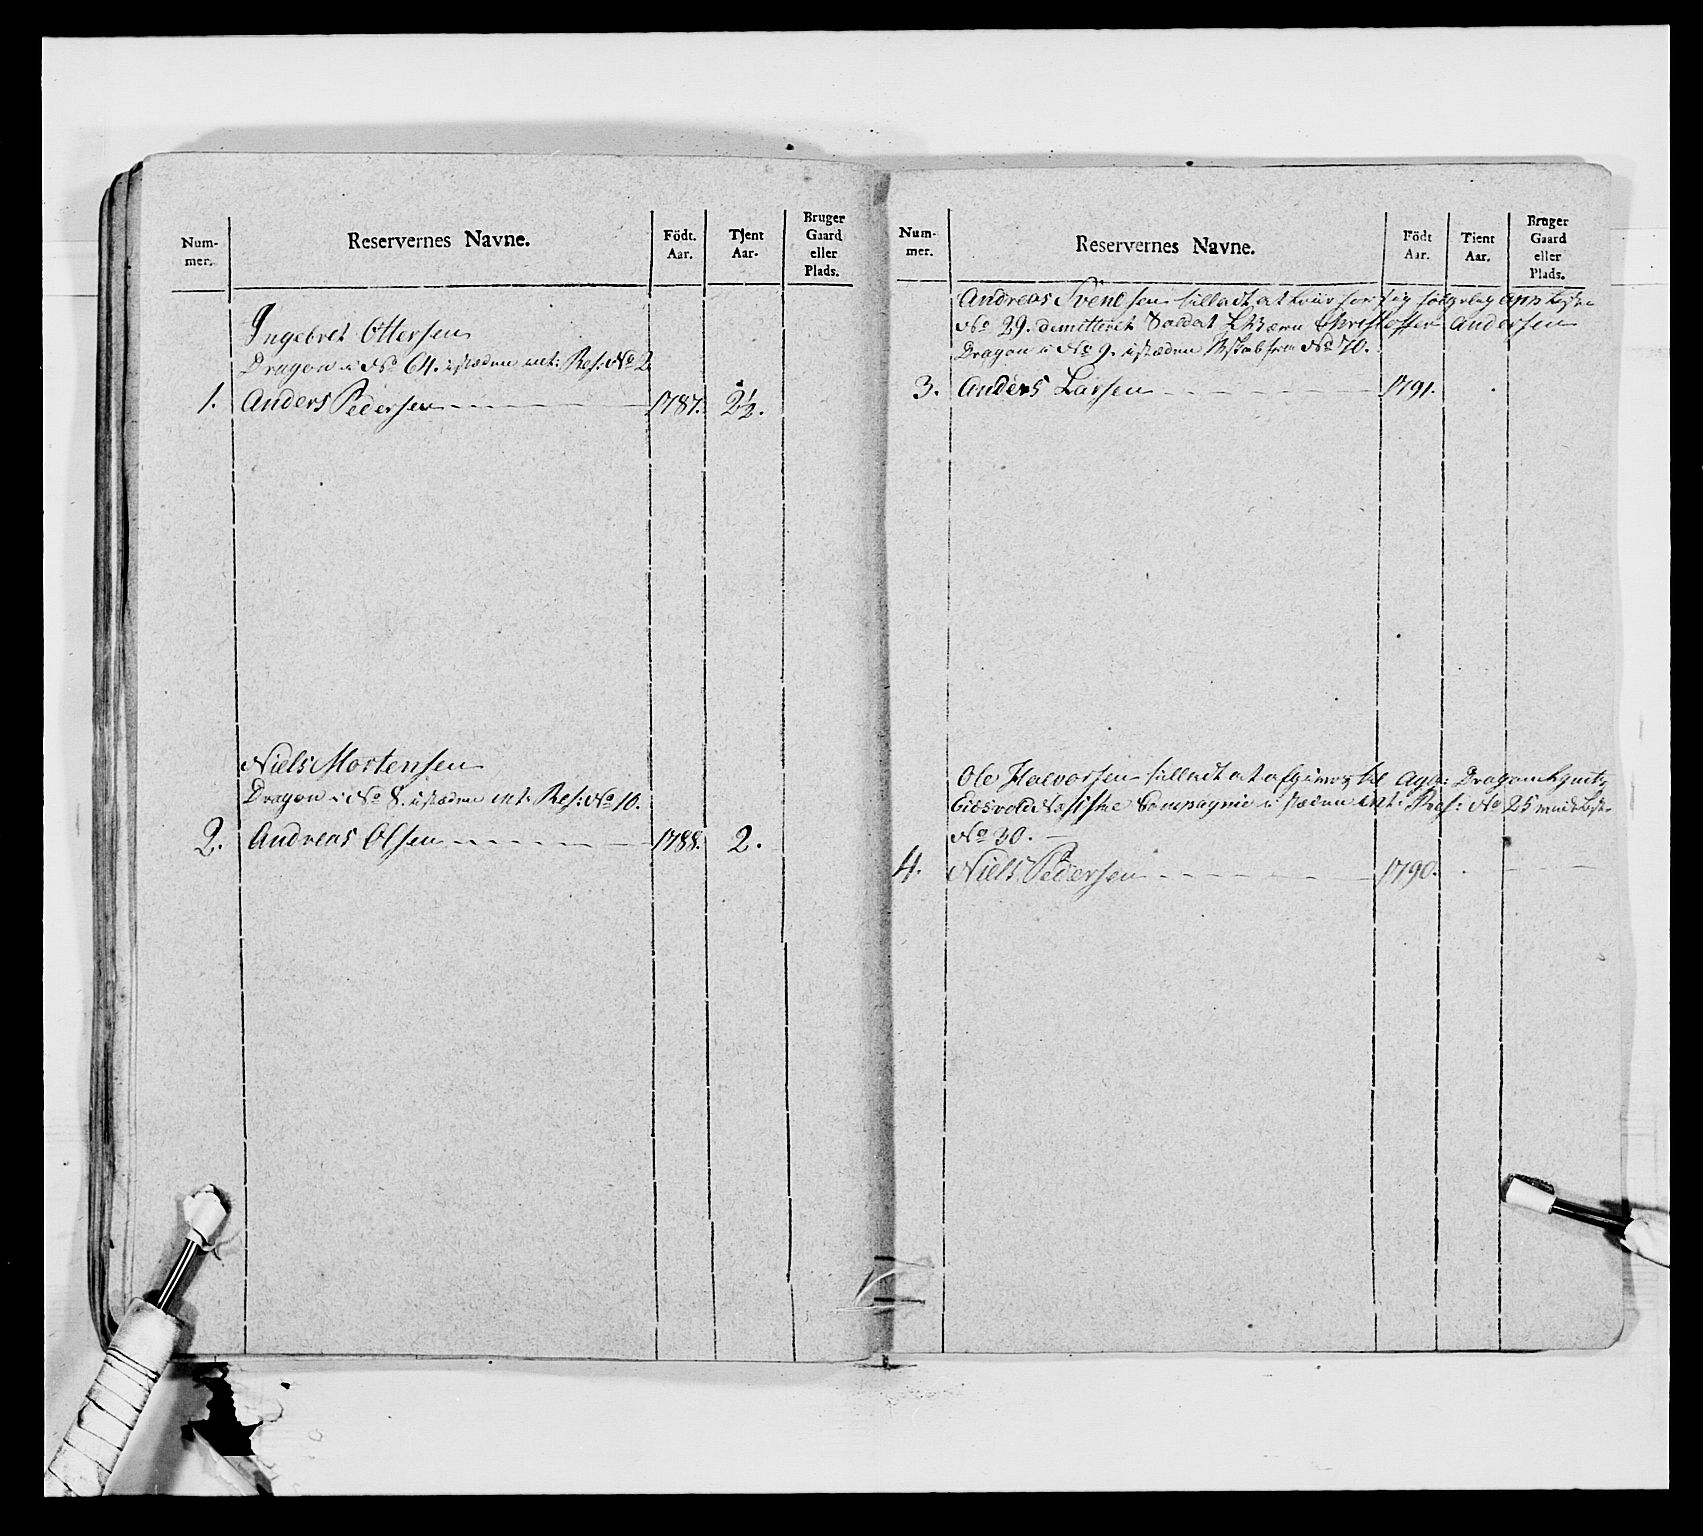 Num-
mer.
Reservernes Navne.
Födt.
Aar.
Tjent
Aar.
Bruger
Gaard
eller
Plads.
Ingebret Ottersen
Dragon i No 64. istæden ent: Res: No 2
1. Anders Pedersen 1787. 2½.
Niels Mortensen
Dragon i No 8. istæden ent: Res: No 10.
2. Andreas Olsen 1788. 2.
Num-
mer.
Reservernes Navne.
Födt
Aar.
Tient
Aar.
Bruger
Gaard
eller
Plads.
Andreas Svendsen tilladt at
No 29. dimitteret Soldat Christoffer Andersen
Dragon i No 9. istæden No 70.
3. Anders Larsen 1791.
Ole Halvorsen tilladt at til Dragon
Eidsvoldske Compagnie i stæden ent: Res: No 25
No 30.
4. Niels Pedersen 1790.